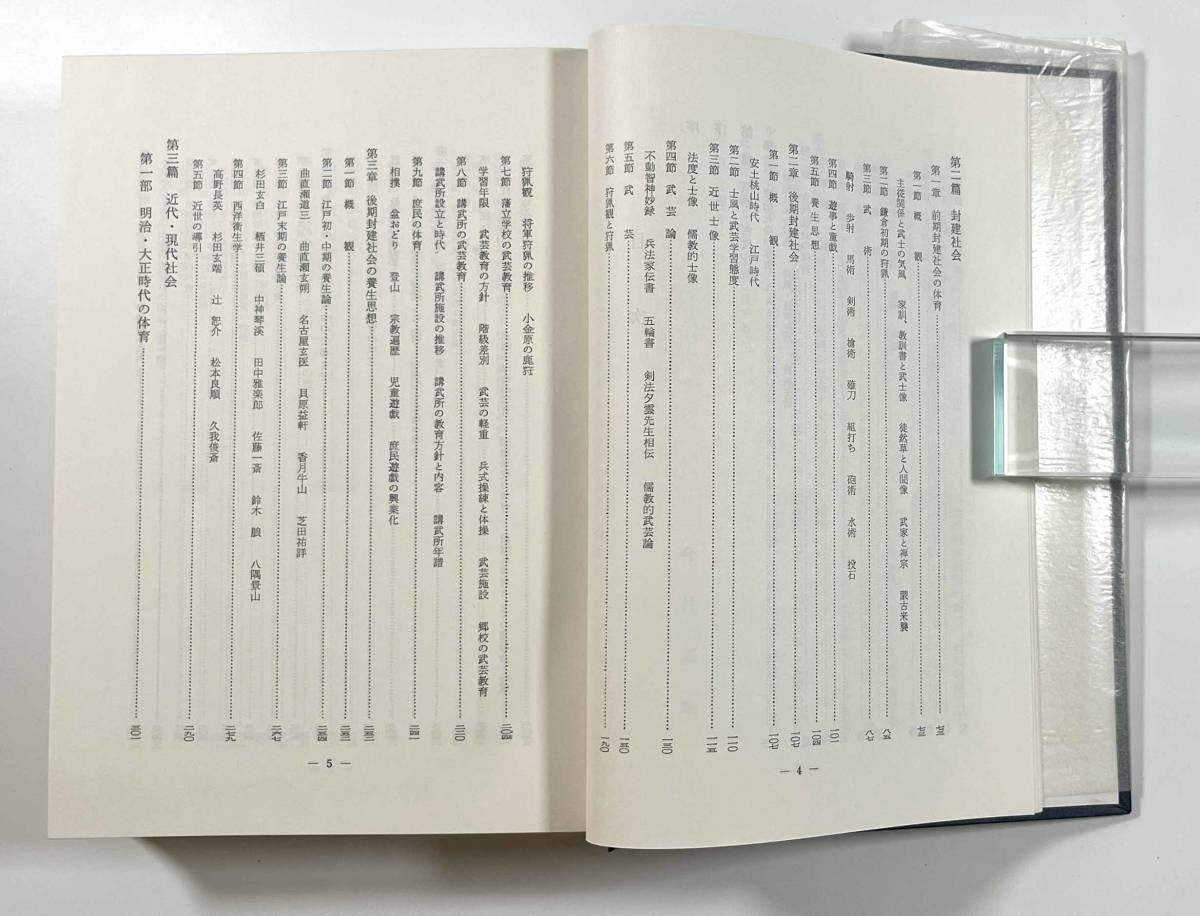 第二篇　封建社会
第一章　前期封建社会の体育……七三
第一節　概　観……七三
主従関係と武士の気風　家訓、教訓書と武士像　徒然草と人間像　武家と禅宗　蒙古来襲
第二節　鎌倉初期の狩猟……八五
第三節　武　術……八七
騎射　歩射　馬術　剣術　槍術　薙刀　組打ち　砲術　水術　投石
第四節　遊事と童戯……一〇一
第五節　養生思想……一〇四
第二章　後期封建社会……一〇七
第一節　概　観……一〇七
安土桃山時代　江戸時代
第二節　士風と武芸学習態度……一一〇
第三節　近世士像……一一五
法度と士像　儒教的士像
第四節　武　芸　論……一三〇
不動智神妙録　兵法家伝書　五輪書　剣法夕雲先生相伝　儒教的武芸論
第五節　武　芸……一五〇
第六節　狩猟観と狩猟……一九〇
— 4 —
狩猟観　将軍狩猟の推移　小金原の鹿狩
第七節　藩立学校の武芸教育……二〇四
学習年限　武芸教育の方針　階級差別　武芸の軽重　兵式操練と体操　武芸施設　郷校の武芸教育
第八節　講武所の武芸教育……二三〇
講武所設立と時代　講武所施設の推移　講武所の教育方針と内容　講武所年譜
第九節　庶民の体育……二四一
相撲　盆おどり　登山　宗教遍歴　児童遊戯　庶民遊戯の興業化
第三章　後期封建社会の養生思想……二五二
第一節　概　観……二五二
第二節　江戸初・中期の養生論……二五四
曲直瀬道三　曲直瀬玄朔　名古屋玄医　貝原益軒　香月牛山　芝田祐詳
第三節　江戸末期の養生論……二六七
杉田玄白　橲井三碩　中神琴溪　田中雅楽郎　佐藤一斎　鈴木　朖　八隅景山
第四節　西洋衛生学……二七九
高野長英　杉田玄端　辻　恕介　松本良順　久我俊斎
第五節　近世の導引……二九〇
第三篇　近代・現代社会
第一部　明治・大正時代の体育……三〇一
— 5 —